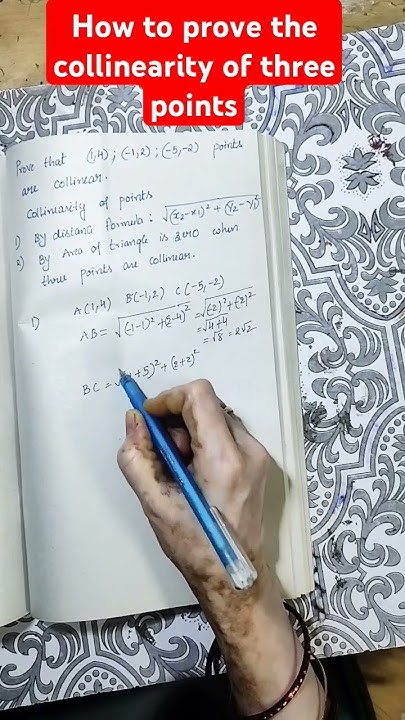 How to prove the
collinearity of three
points
Prove that (1,4) ; (-1,2) ; (-5,-2) points
are collinear.
Collinearity of points
1) By distance formula : √(x₂-x₁)² + (y₂-y₁)²
2) By Area of triangle is zero when
three points are collinear.
1) A(1,4) B(-1,2) C(-5,-2)
AB = √(-1-1)² + (2-4)² = √(-2)² + (-2)²
= √4+4
= √8 = 2√2
BC = +5)² + (2+2)²